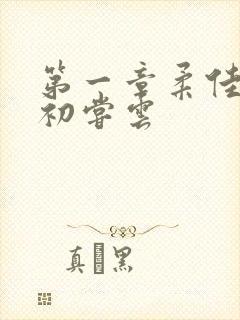 第一章柔佳
初嘗雲
真 黑